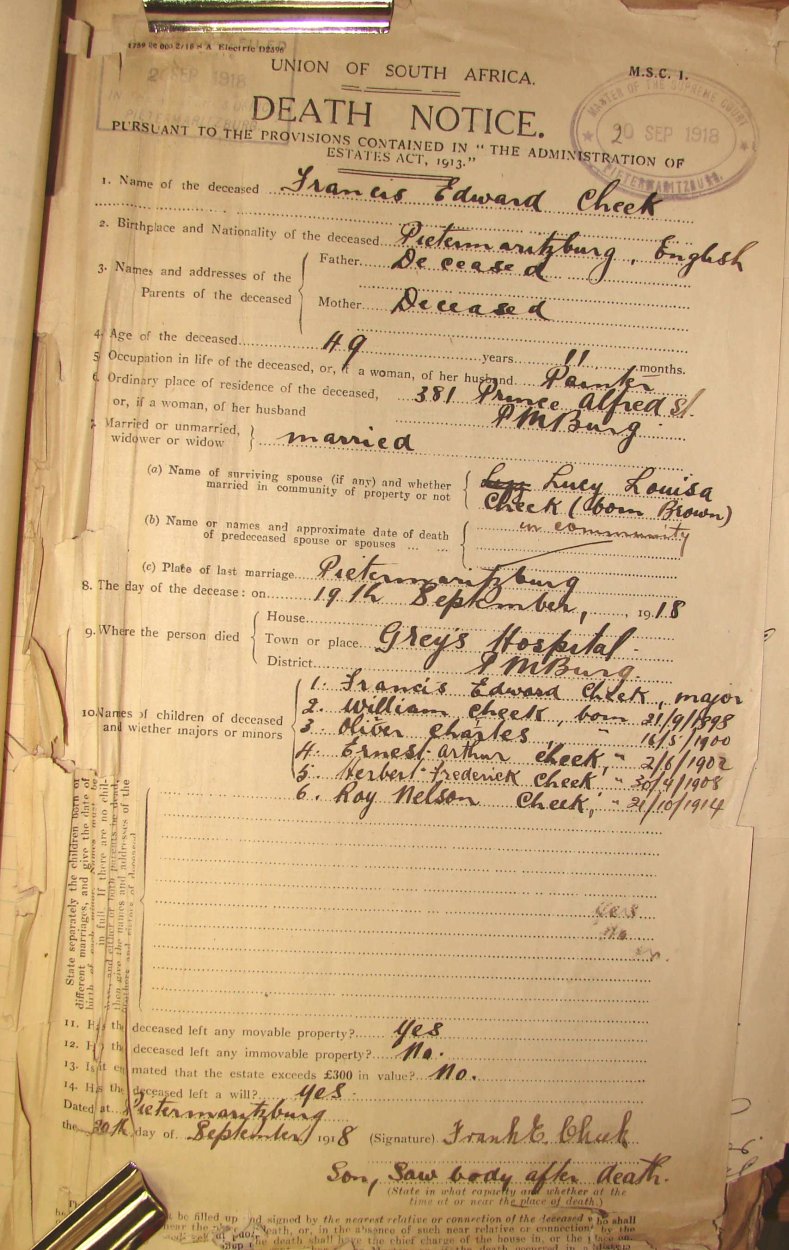 1759 20,000 2/18 S A Electric D2596
FILED
20 SEP 1918
PIETERMARITZBURG
UNION OF SOUTH AFRICA.
M.S.C. 1.
MASTER OF THE SUPREME COURT
20 SEP 1918
PIETERMARITZBURG.
DEATH NOTICE.
PURSUANT TO THE PROVISIONS CONTAINED IN "THE ADMINISTRATION OF
ESTATES ACT, 1913."
1. Name of the deceased Francis Edward Cheek
2. Birthplace and Nationality of the deceased Pietermaritzburg, English
3. Names and addresses of the Parents of the deceased
Father Deceased
Mother Deceased
4. Age of the deceased 49 years 11 months.
5. Occupation in life of the deceased, or, if a woman, of her husband Painter
6. Ordinary place of residence of the deceased, 381 Prince Alfred St.
or, if a woman, of her husband P M Burg
7. Married or unmarried, widower or widow married
(a) Name of surviving spouse (if any) and whether married in community of property or not
Lucy Louisa
Cheek (born Brown)
in community
(b) Name or names and approximate date of death of predeceased spouse or spouses
(c) Place of last marriage Pietermaritzburg
8. The day of the decease: on 19th September, 1918
9. Where the person died
House
Town or place Grey's Hospital.
District P M Burg.
10. Names of children of deceased and whether majors or minors
1. Francis Edward Cheek, major
2. William Cheek, born 21/9/1898
3. Oliver Charles, " 16/5/1900
4. Ernest Arthur Cheek, " 2/6/1902
5. Herbert Frederick Cheek " 30/4/1908
6. Roy Nelson Cheek, " 21/10/1914
State separately the children born of
different marriages, and give the date of
birth of each minor. Names must be
in full. If there are no chil-
dren, and either or both parents be dead,
then give the names and addresses of the
brothers and sisters of deceased
11. Has the deceased left any movable property? Yes
12. Has the deceased left any immovable property? No.
13. Is it estimated that the estate exceeds £300 in value? No.
14. Has the deceased left a will? Yes.
Dated at Pietermaritzburg
the 20th day of September 1918 (Signature) Frank E. Cheek
Son, Saw body after death.
(State in what capacity and whether at the
time at or near the place of death.)
be filled up and signed by the nearest relative or connection of the deceased who shall
near the place of death, or, in the absence of such near relative or connection, by the
the death shall have the chief charge of the house in, or the place on